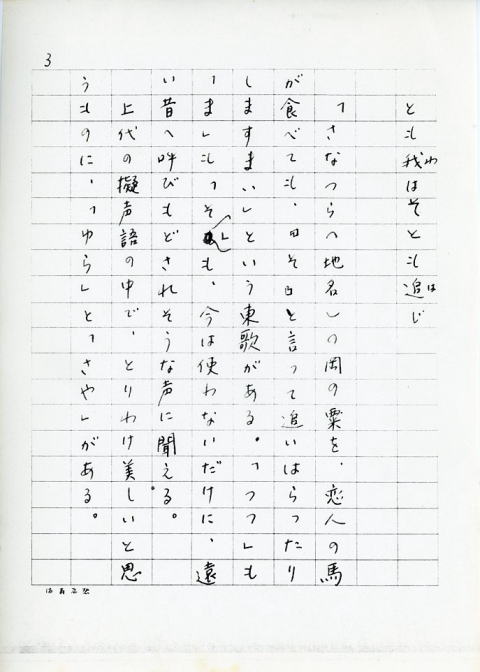 3
とも我はそとも追じ
わ
は
「さなつら(地名)の岡の粟を、恋人の馬
が食べても、「そ」と言って追いはらったり
しますまい」という東歌がある。「つつ」も
「ま」も「そ」も、今は使わないだけに、遠
い昔へ呼びもどされそうな声に聞える。
上代の擬声語の中で、とりわけ美しいと思
うものに、「ゆら」と「さや」がある。